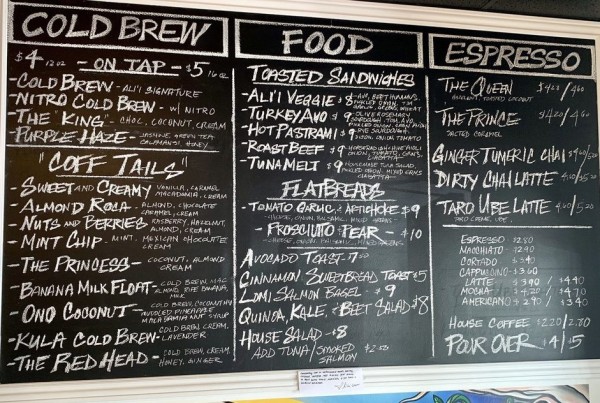 COLD BREW
$4 12 oz - ON TAP - $5 16 oz
- COLD BREW - ALI'I SIGNATURE
- NITRO COLD BREW - w/ NITRO
- THE "KING" - CHOC, COCONUT, CREAM
PURPLE HAZE - JASMINE, GREEN TEA
HONEY
"COFF TAILS"
- SWEET AND CREAMY VANILLA, CARAMEL
MACADAMIA, CREAM
- ALMOND ROCA - ALMOND, CHOCOLATE
CARAMEL, CREAM
- NUTS AND BERRIES RASPBERRY, HAZELNUT,
ALMOND, CREAM
- MINT CHIP - MINT, MEXICAN CHOCOLATE
CREAM
- THE PRINCESS - COCONUT, ALMOND
CREAM
- BANANA MILK FLOAT - COLD BREW, MAC
ALMOND, RIPE BANANA,
MILK
- ONO COCONUT - COLD BREW, COCONUT MILK
PINEAPPLE
MACADAMIA NUT SYRUP
- KULA COLD BREW - COLD BREW, CREAM,
LAVENDER
- THE RED HEAD - COLD BREW, CREAM,
HONEY, GINGER
FOOD
TOASTED SANDWICHES
- ALI'I VEGGIE $9
PICKLED ONION, TOM
- TURKEY AVO $9 - OLIVE ROSEMARY
SOURDOUGH, TOM, AVO,
- HOT PASTRAMI $9 - RYE SOURDOUGH,
ONION, TOMATO
- ROAST BEEF $9 - HORSERADISH
ONION, TOMATO, GRNS,
- TUNA MELT $9 - HOUSEMADE TUNA SALAD,
PICKLED ONION, MIXED GRNS
FLATBREADS
- TOMATO GARLIC & ARTICHOKE $9
- CHEESE, ONION, BALSAMIC, MIXED GREENS
- PROSCIUTTO & PEAR - $10
- CHEESE, ONION, BALSAMIC, MIXED GREENS
AVOCADO TOAST - 7.50
CINNAMON SWEETBREAD TOAST $5
LOMI SALMON BAGEL - $9
QUINOA, KALE, & BEET SALAD $8
HOUSE SALAD - $8
ADD TUNA/SMOKED $2.50
SALMON
ESPRESSO
THE QUEEN $4.20/4.60
TOASTED COCONUT
THE PRINCE $4.20/4.60
SALTED CARAMEL
GINGER TUMERIC CHAI $4.60/5.20
DIRTY CHAI LATTE 4.60/5.20
TARO UBE LATTE 4.60/5.20
TARO CREME, UBE
ESPRESSO $2.80
MACCHIATO $2.90
CORTADO $3.40
CAPPUCCINO $3.60
LATTE $3.90 / $4.40
MOCHA $4.20 / $4.70
AMERICANO $2.90 / $3.40
HOUSE COFFEE $2.20/2.70
POUR OVER $4/$5